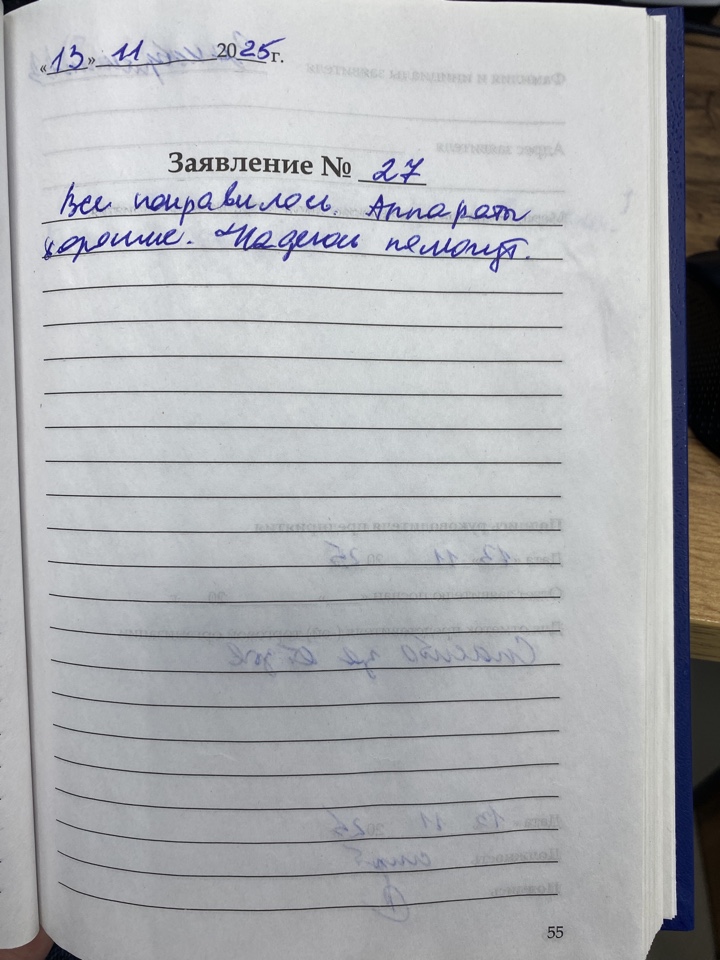 «13» 11 2025г.
Заявление № 27
Все понравилось. Аппараты
хорошие. Надеюсь помогут.
55